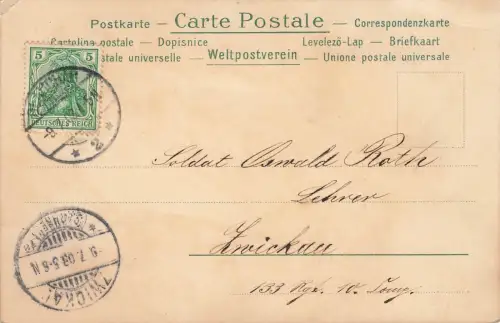 Postkarte — Carte Postale — Correspondenzkarte
Cartolina postale — Dopisnice Levelező-Lap — Briefkaart
tale universelle — Weltpostverein — Unione postale universale
5 5
DEUTSCHES REICH
2
Soldat Oswald Roth
Lehrer
Zwickau
133 Rgt. 10. Comp.
ZWICKAU
9.7.03.5-6 N